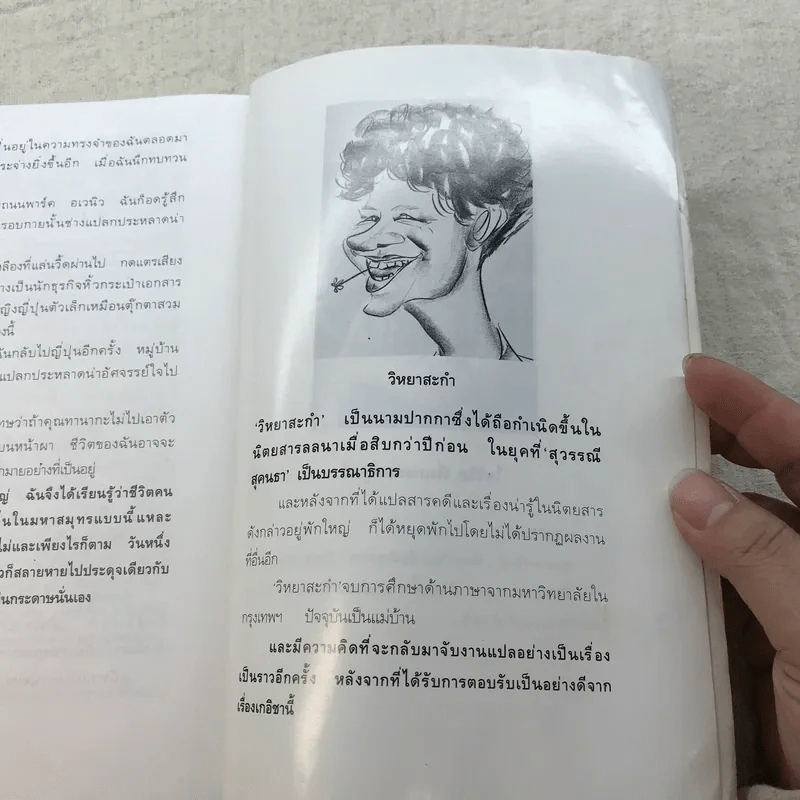 นอยู่ในความทรงจำของฉันตลอดมา
ระจ่างยิ่งขึ้นอีก เมื่อฉันนึกทบทวน
ถนนพาร์ค อเวนิว ฉันก็อดรู้สึก
รอบกายนั้นช่างแปลกประหลาดน่า
ลืองที่แล่นวี้ดผ่านไป กดแตรเสียง
างเป็นนักธุรกิจหิ้วกระเป๋าเอกสาร
ญิงญี่ปุ่นตัวเล็กเหมือนตุ๊กตาสวม
งนี้
ฉันกลับไปญี่ปุ่นอีกครั้ง หมู่บ้าน
แปลกประหลาดน่าอัศจรรย์ใจไป
ทษว่าถ้าคุณทานากะไม่ไปเอาตัว
บนหน้าผา ชีวิตของฉันอาจจะ
กมายอย่างที่เป็นอยู่
ญ่ ฉันจึงได้เรียนรู้ว่าชีวิตคน
ขึ้นในมหาสมุทรแบบนี้แหละ
ไม่และเพียงไรก็ตาม วันหนึ่ง
วก็สลายหายไปประดุจเดียวกับ
นกระดาษนั่นเอง
วิหยาสะกำ
'วิหยาสะกำ' เป็นนามปากกาซึ่งได้ถือกำเนิดขึ้นใน
นิตยสารลลนาเมื่อสิบกว่าปีก่อน ในยุคที่'สุวรรณี
สุคนธา' เป็นบรรณาธิการ
และหลังจากที่ได้แปลสารคดีและเรื่องน่ารู้ในนิตยสาร
ดังกล่าวอยู่พักใหญ่ ก็ได้หยุดพักไปโดยไม่ได้ปรากฏผลงาน
ที่อื่นอีก
'วิหยาสะกำ'จบการศึกษาด้านภาษาจากมหาวิทยาลัยใน
กรุงเทพฯ ปัจจุบันเป็นแม่บ้าน
และมีความคิดที่จะกลับมาจับงานแปลอย่างเป็นเรื่อง
เป็นราวอีกครั้ง หลังจากที่ได้รับการตอบรับเป็นอย่างดีจาก
เรื่องเกอิชานี้